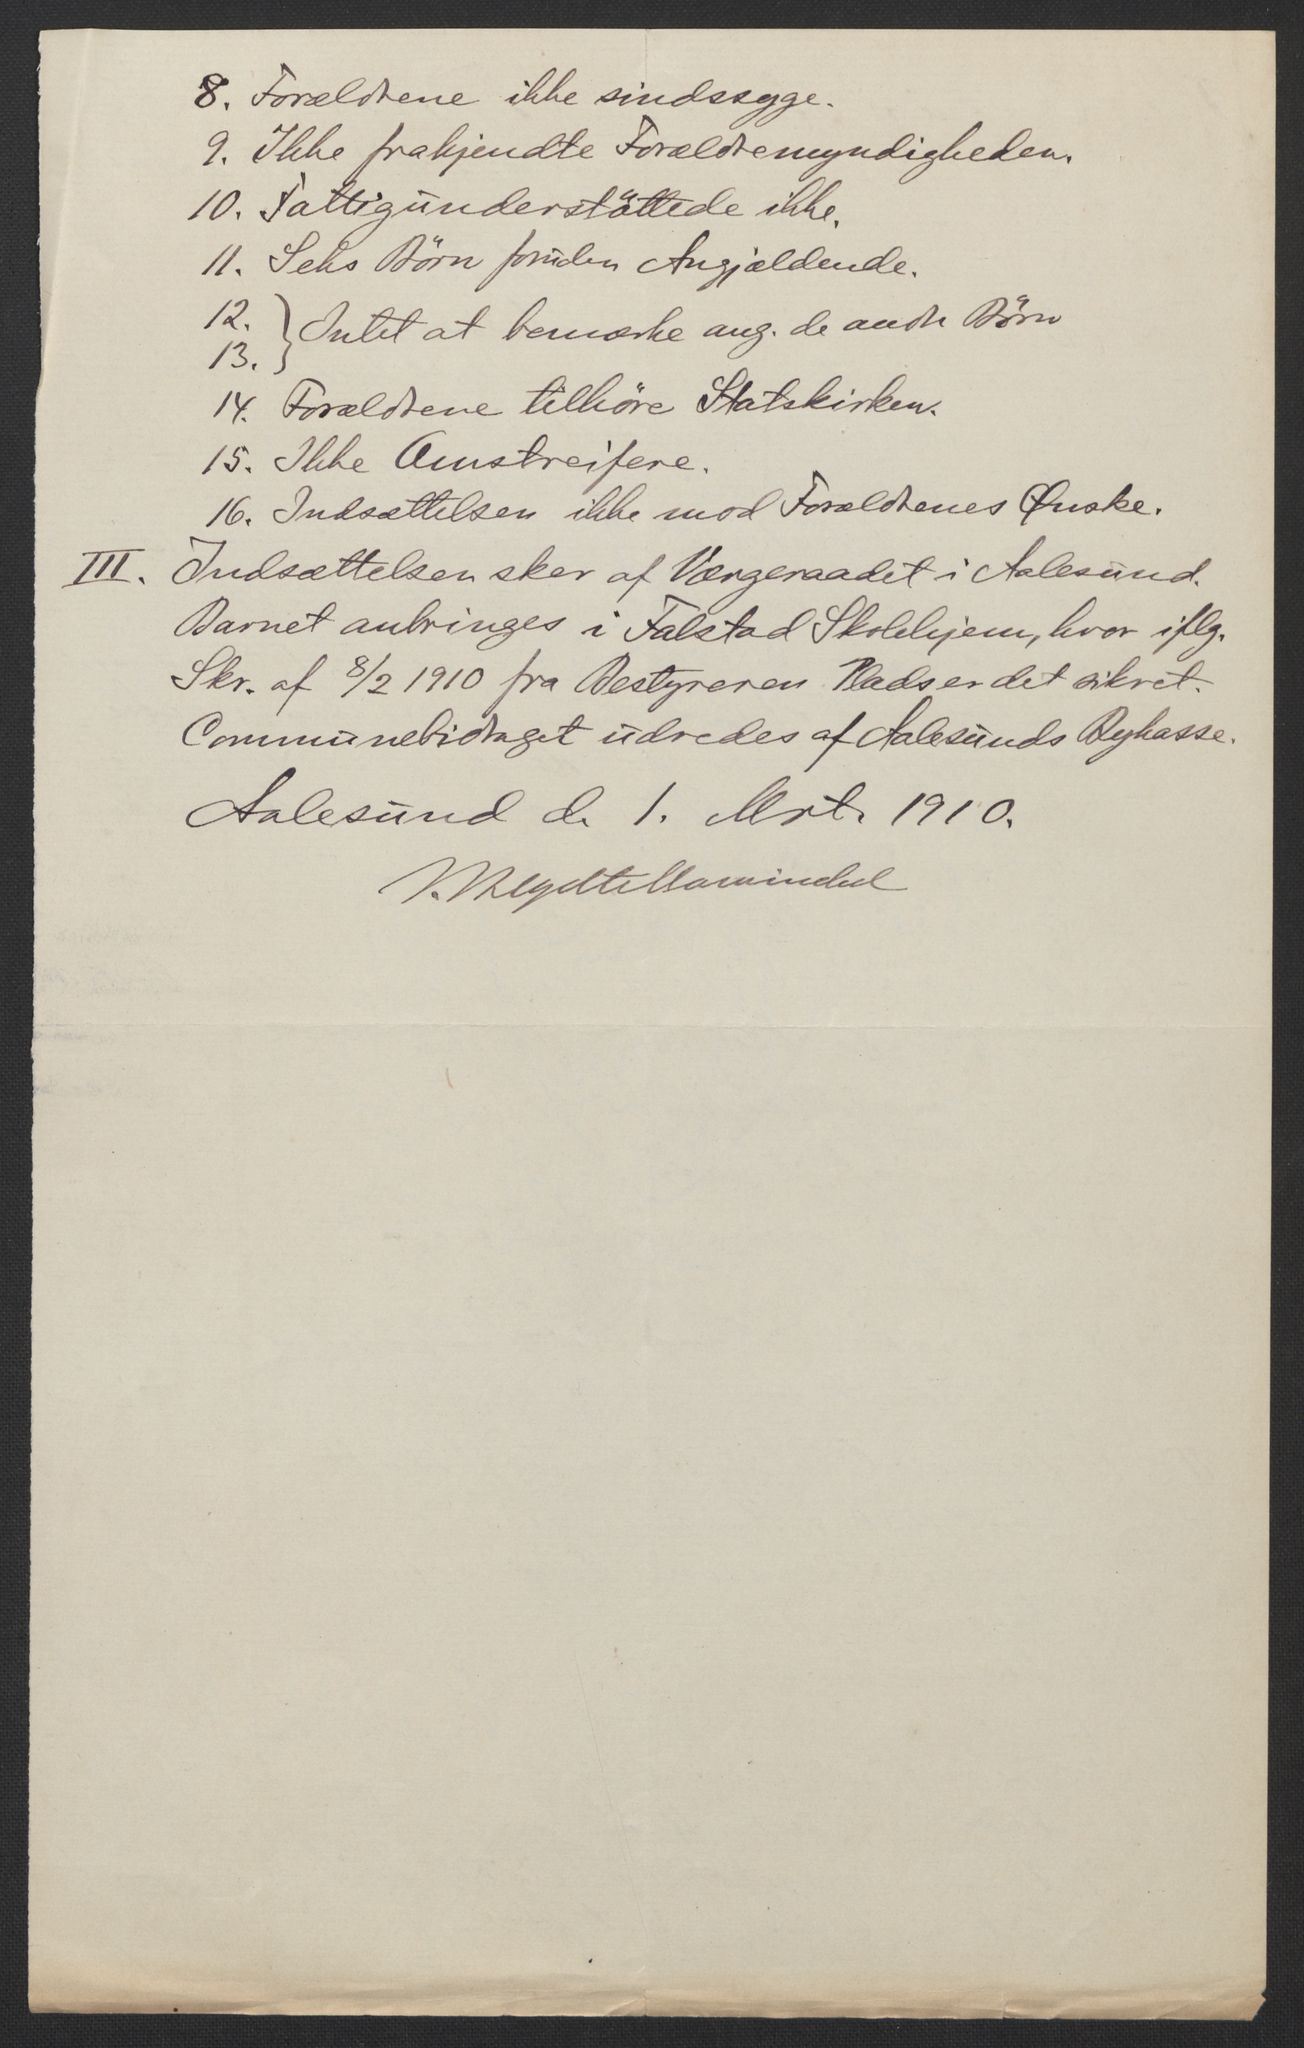 8. Forældrene ikke sindssyge.
9. Ikke frakjendte Forældremyndigheden.
10. Fattigunderstöttede ikke.
11. Seks Börn foruden Angjældende.
12.
13. } Intet at bemærke ang. de andre Börn
14. Forældrene tilhöre Statskirken.
15. Ikke Omstreifere.
16. Indsættelsen ikke mod Forældrenes Ønske.
III. Indsættelsen sker af Værgeraadet i Aalesund.
Barnet anbringes i Falstad Skolehjem, hvor iflg.
Skr. af 8/2 1910 fra Bestyreren Plads er det sikret.
Communebidraget udredes af Aalesunds Bykasse.
Aalesund d. 1. Mrt. 1910.